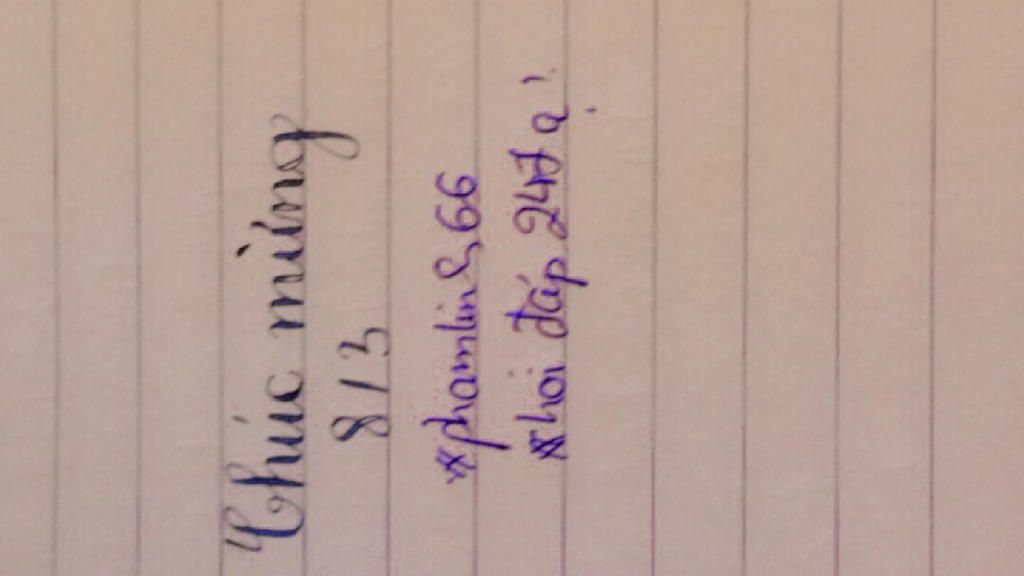 Chúc mừng
8/3
*phamlinh66
*hỏi đáp 247 ạ!